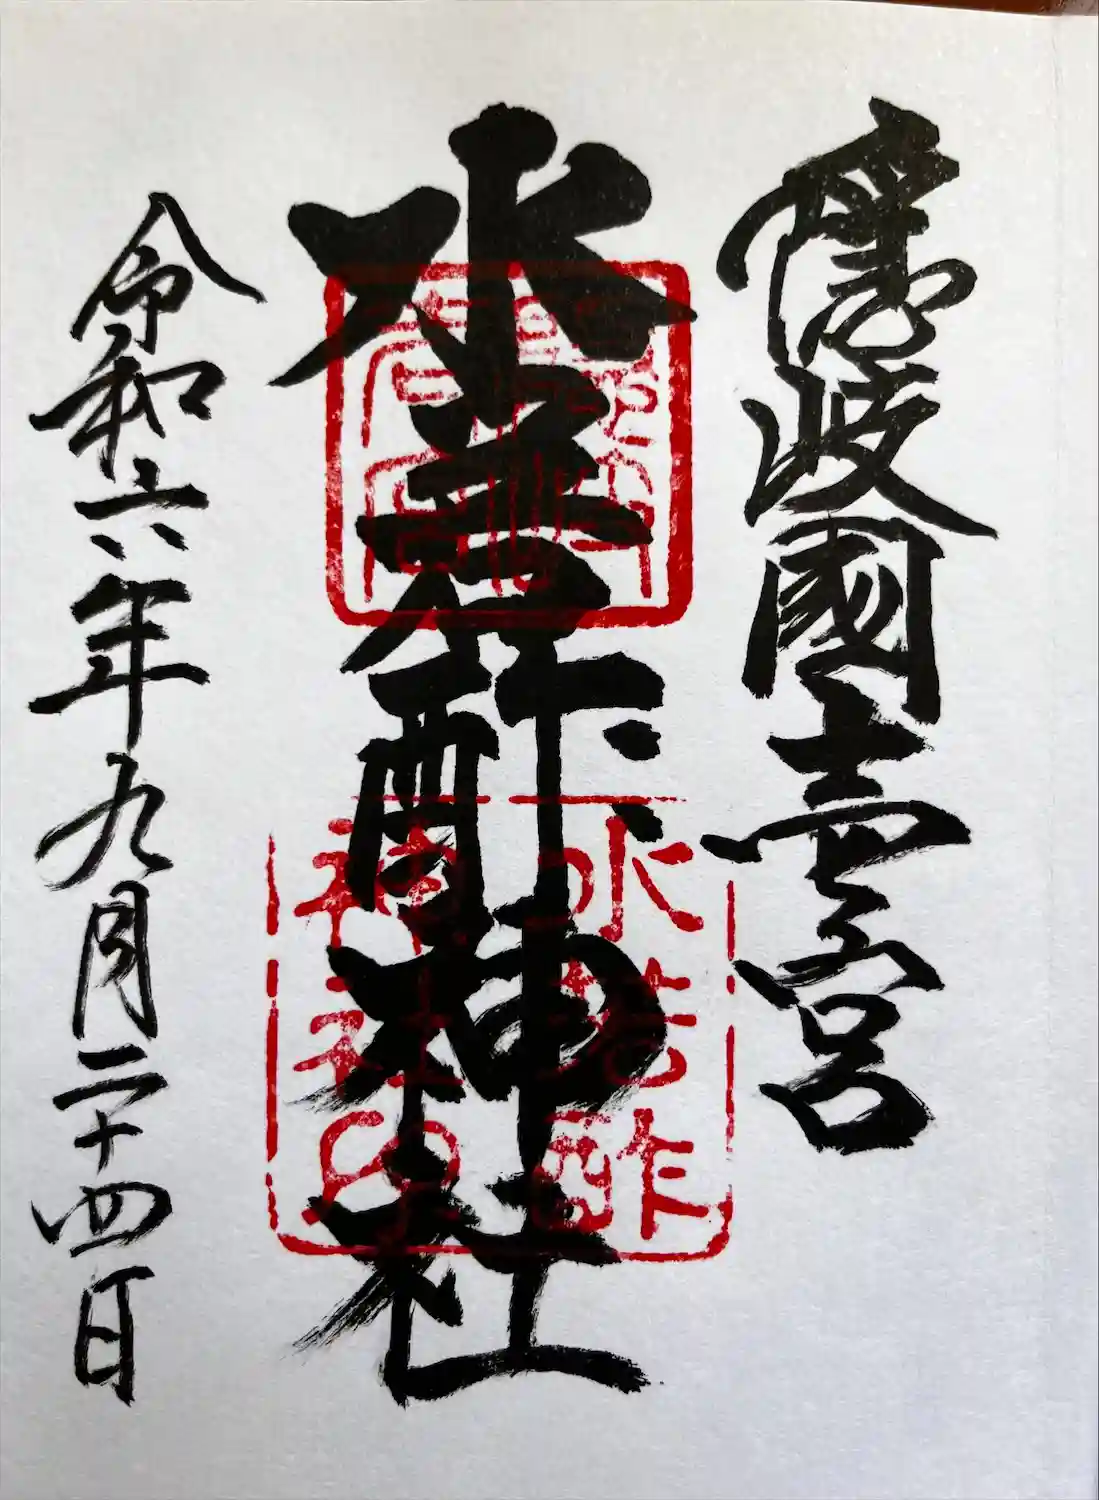 隠岐國壱宮
水若酢神社
令和六年九月二十四日
水若酢
神社印